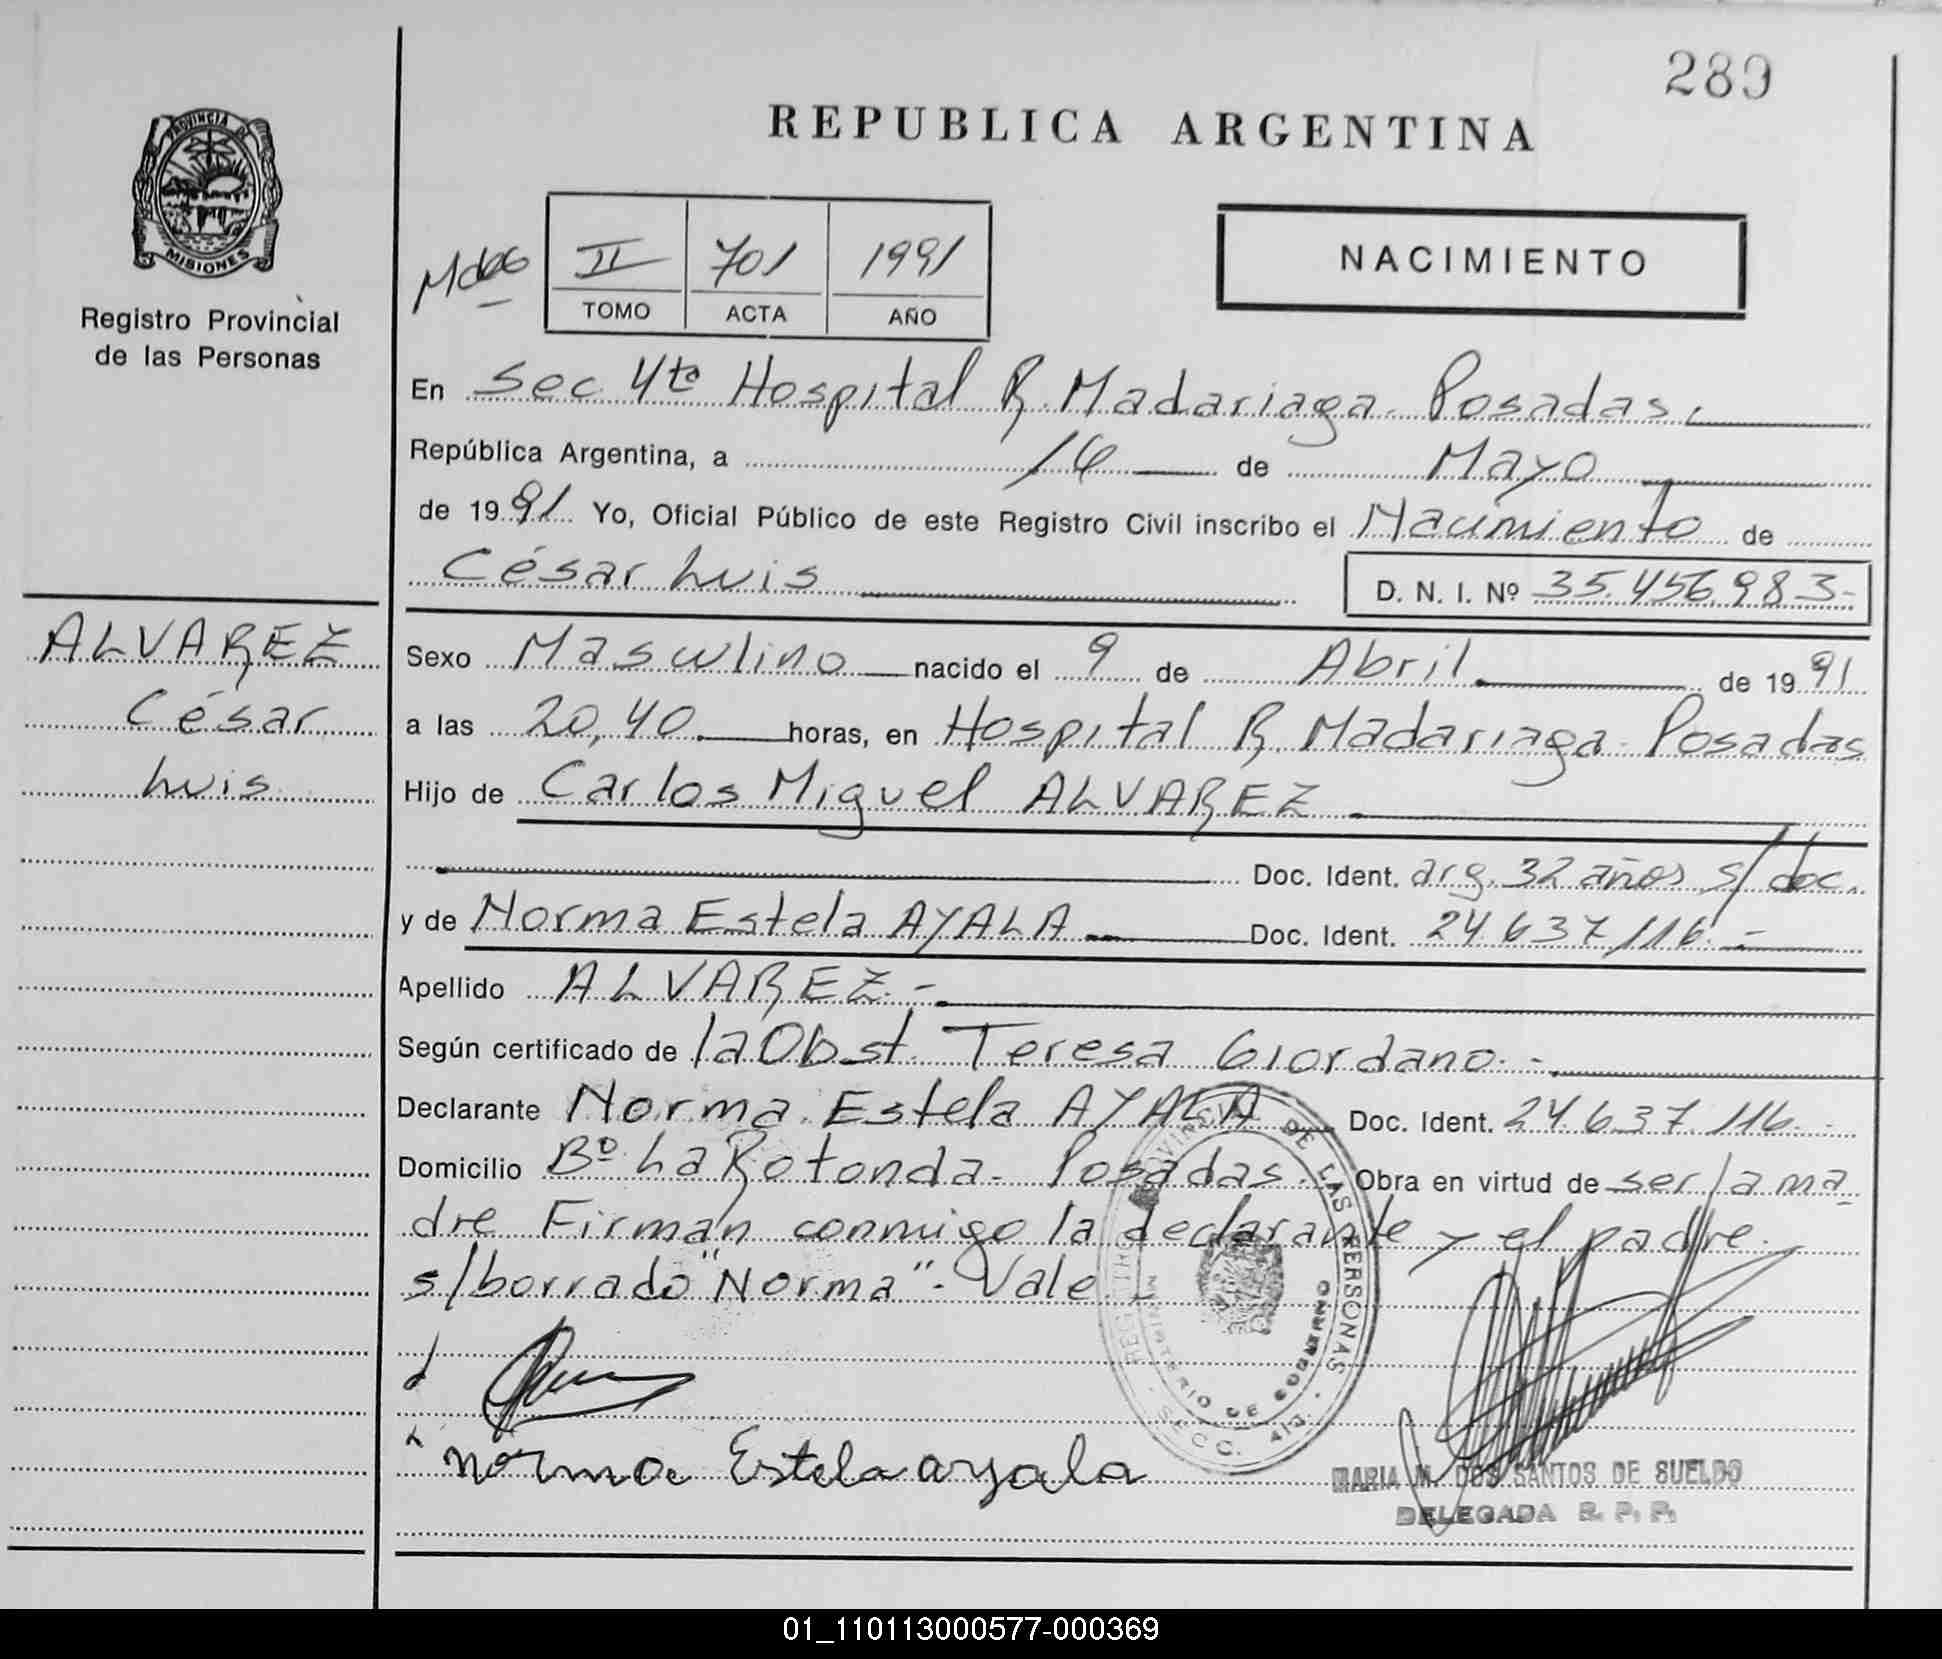 289
REPUBLICA ARGENTINA
PROVINCIA DE
MISIONES
Registro Provincial
de las Personas
II 701 1991
TOMO ACTA AÑO
NACIMIENTO
En Sec. 4ta Hospital R. Madariaga. Posadas.
República Argentina, a 16 de Mayo
de 1991 Yo, Oficial Público de este Registro Civil inscribo el Nacimiento de
César Luis D. N. I. Nº 35.456.983-
ALVAREZ
César
Luis
Sexo Masculino nacido el 9 de Abril de 1991
a las 20,40 horas, en Hospital R. Madariaga- Posadas
Hijo de Carlos Miguel ALVAREZ
Doc. Ident. arg. 32 años s/doc.
y de Norma Estela AYALA Doc. Ident. 24.637.116.-
Apellido ALVAREZ.-
Según certificado de la Obst. Teresa Giordano.-
Declarante Norma Estela AYALA Doc. Ident. 24.637.116.-
Domicilio Bº La Rotonda- Posadas. Obra en virtud de ser la ma
dre Firman conmigo la declarante y el padre.
s/borrado "Norma"- Vale
REGISTRO PROVINCIAL DE LAS PERSONAS
MINISTERIO DE GOBIERNO
SECC. 4
Norma Estela ayala
MARIA M. DOS SANTOS DE SUELDO
DELEGADA R. P. P.
01_110113000577-000369